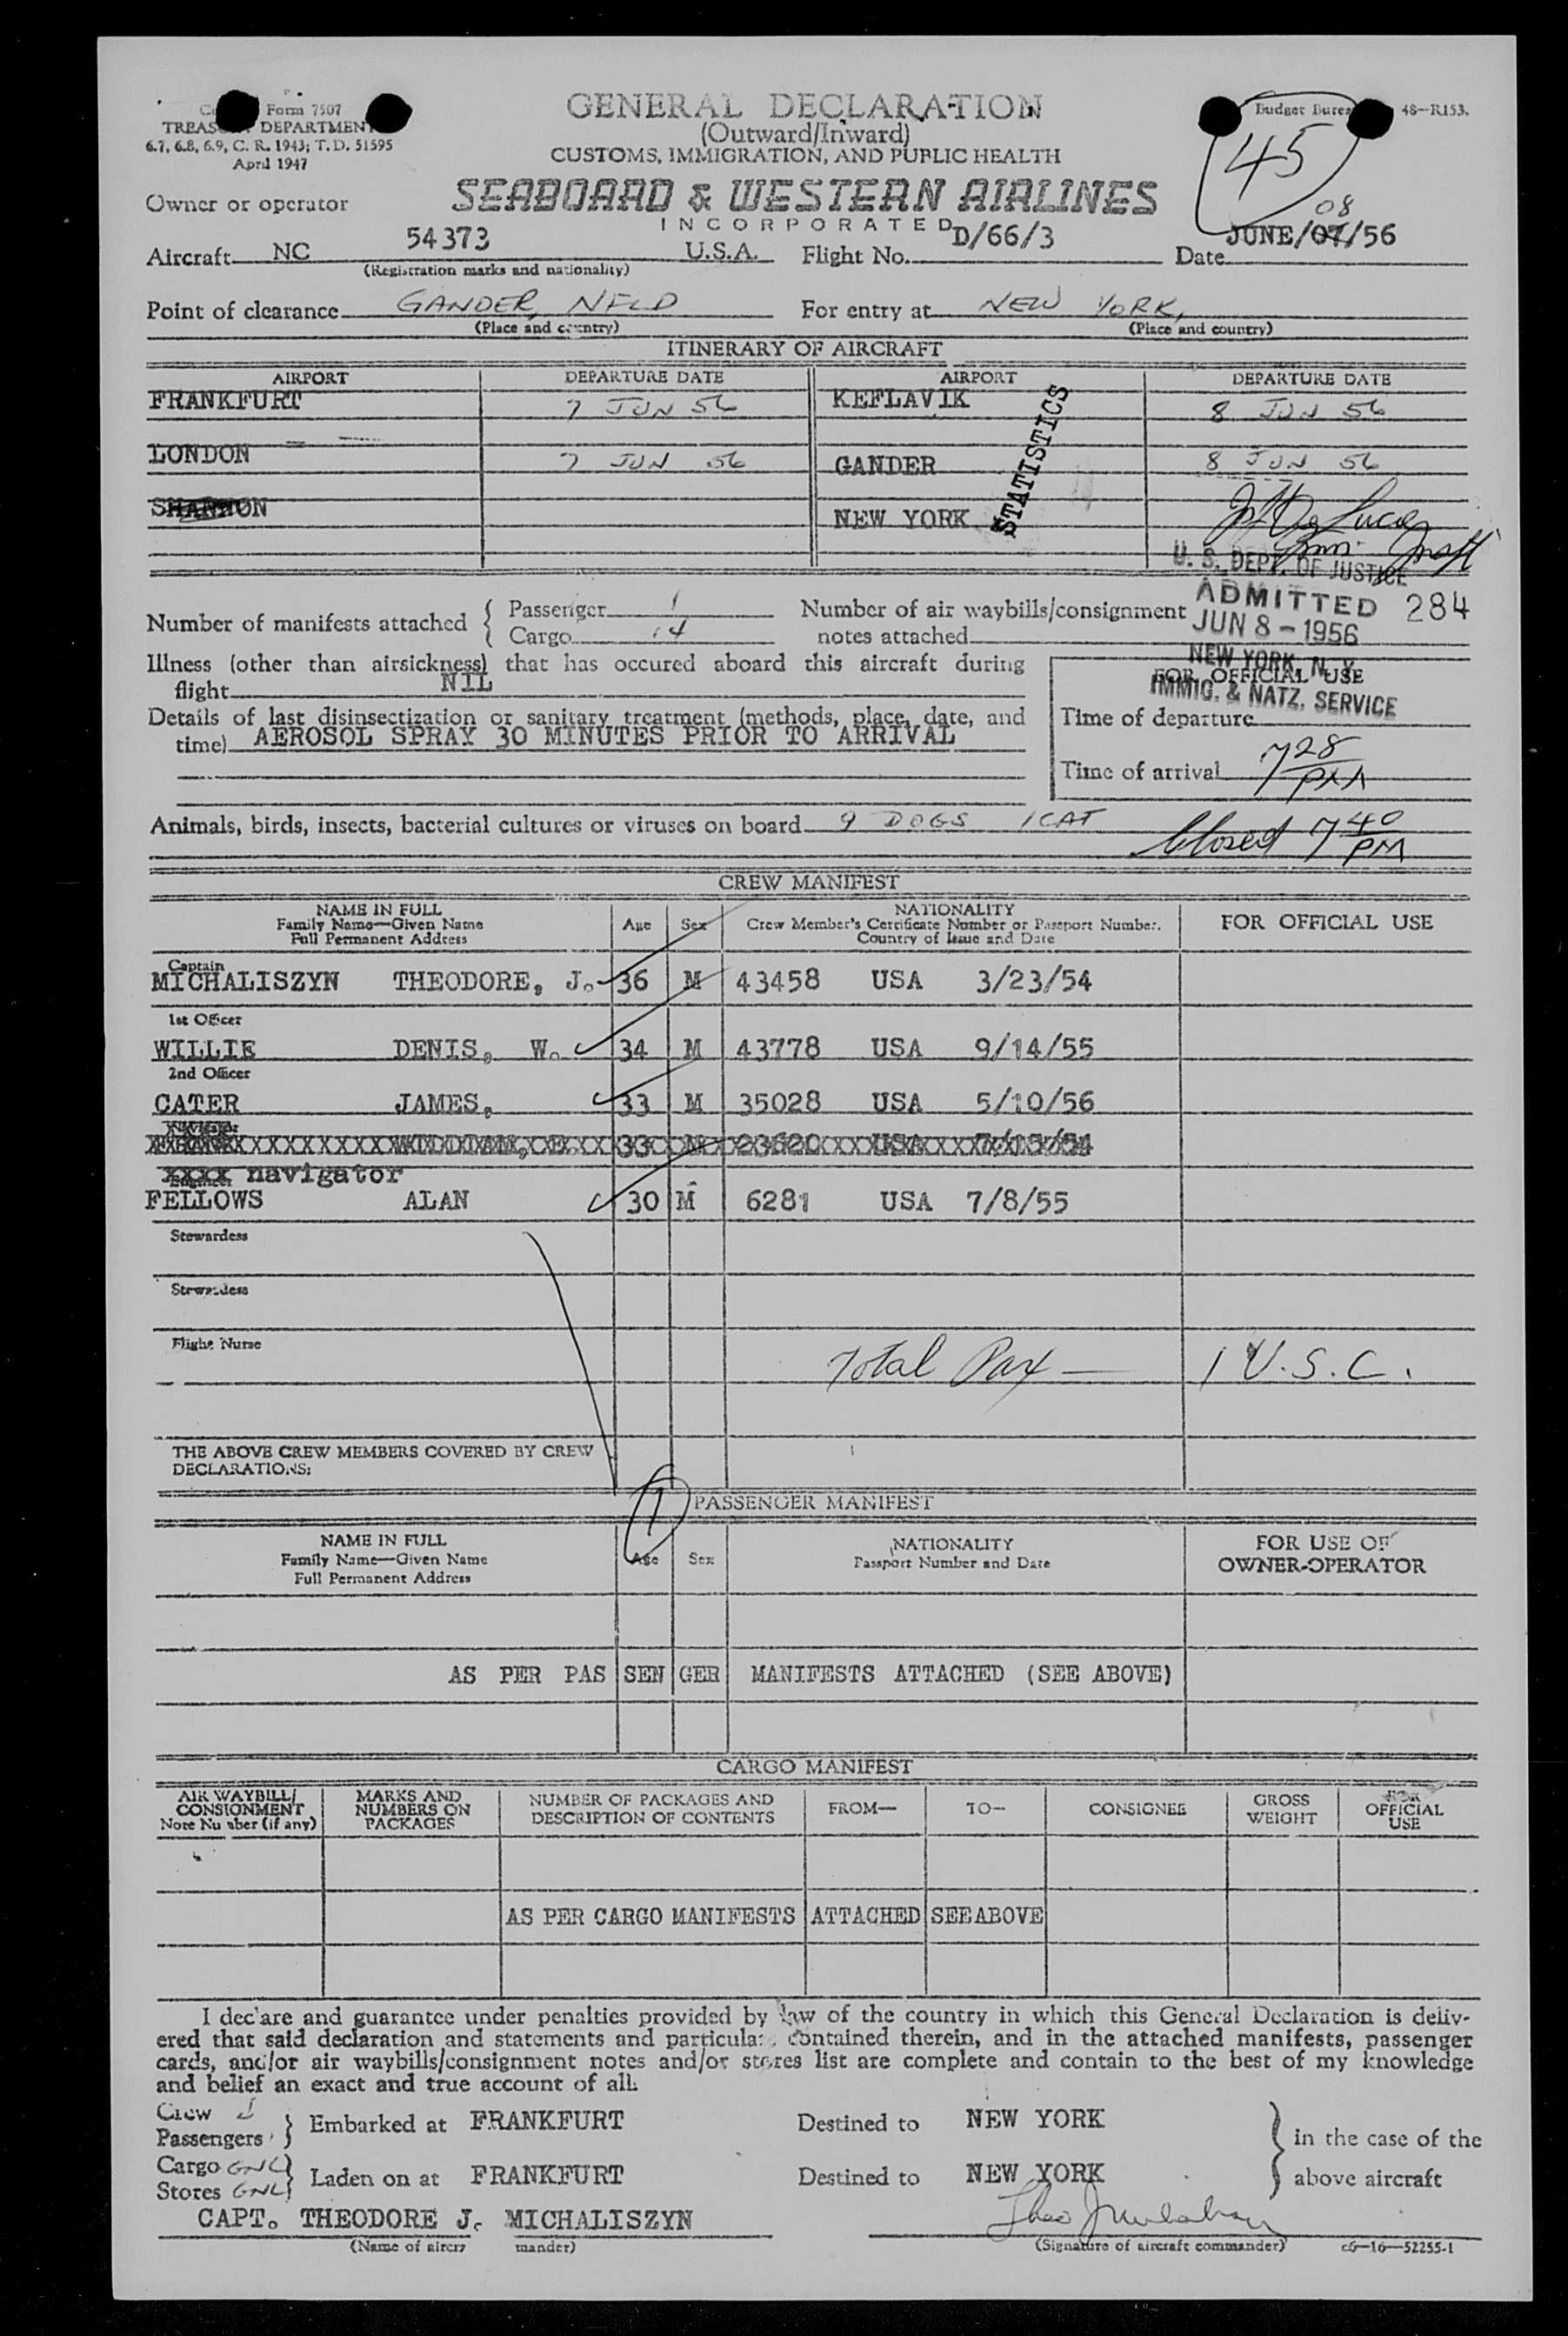 Form 7507
TREAS DEPARTMENT
6.7, 6.8, 6.9, C. R. 1943; T. D. 51595
April 1947
GENERAL DECLARATION
(Outward/Inward)
CUSTOMS, IMMIGRATION, AND PUBLIC HEALTH
Budget Burea 48—R153.
45
Owner or operator SEABOARD & WESTERN AIRLINES
INCORPORATED
08
Aircraft NC 54373 U.S.A. Flight No. D/66/3 Date JUNE/07/56
(Registration marks and nationality)
Point of clearance GANDER, NFLD For entry at NEW YORK,
(Place and country) (Place and country)
ITINERARY OF AIRCRAFT
AIRPORT DEPARTURE DATE AIRPORT DEPARTURE DATE
FRANKFURT 7 JUN 56 KEFLAVIK 8 JUN 56
LONDON 7 JUN 56 GANDER 8 JUN 56
SHANNON NEW YORK
STATISTICS
U. S. DEPT. OF JUSTICE
ADMITTED 284
JUN 8 - 1956
NEW YORK, N. Y.
IMMIG. & NATZ. SERVICE
Number of manifests attached { Passenger 1
Cargo 14
Number of air waybills/consignment
notes attached
Illness (other than airsickness) that has occured aboard this aircraft during
flight NIL
Details of last disinsectization or sanitary treatment (methods, place, date, and
time) AEROSOL SPRAY 30 MINUTES PRIOR TO ARRIVAL
FOR OFFICIAL USE
Time of departure
Time of arrival 7 28 PM
Animals, birds, insects, bacterial cultures or viruses on board 9 DOGS 1 CAT
Closed 7 40 PM
CREW MANIFEST
NAME IN FULL
Family Name—Given Name
Full Permanent Address
Age Sex
NATIONALITY
Crew Member's Certificate Number or Passport Number.
Country of Issue and Date
FOR OFFICIAL USE
Captain
MICHALISZYN THEODORE, J. 36 M 43458 USA 3/23/54
1st Officer
WILLIE DENIS, W. 34 M 43778 USA 9/14/55
2nd Officer
CATER JAMES, 33 M 35028 USA 5/10/56
WILLIAM, 33 M 23620 USA
xxxx navigator
FELLOWS ALAN 30 M 6281 USA 7/8/55
Stewardess
Stewardess
Flight Nurse
Total Pax — 1 U.S.C.
THE ABOVE CREW MEMBERS COVERED BY CREW
DECLARATIONS:
1
PASSENGER MANIFEST
NAME IN FULL
Family Name—Given Name
Full Permanent Address
Age Sex
NATIONALITY
Passport Number and Date
FOR USE OF
OWNER-OPERATOR
AS PER PAS SEN GER MANIFESTS ATTACHED (SEE ABOVE)
CARGO MANIFEST
AIR WAYBILL/
CONSIGNMENT
Note Nu ber (if any)
MARKS AND
NUMBERS ON
PACKAGES
NUMBER OF PACKAGES AND
DESCRIPTION OF CONTENTS
FROM— TO— CONSIGNEE
GROSS
WEIGHT
FOR
OFFICIAL
USE
AS PER CARGO MANIFESTS ATTACHED SEE ABOVE
I declare and guarantee under penalties provided by law of the country in which this General Declaration is deliv-
ered that said declaration and statements and particulars contained therein, and in the attached manifests, passenger
cards, and/or air waybills/consignment notes and/or stores list are complete and contain to the best of my knowledge
and belief an exact and true account of all
Crew
Passengers } Embarked at FRANKFURT Destined to NEW YORK } in the case of the
Cargo GNL
Stores GNL } Laden on at FRANKFURT Destined to NEW YORK above aircraft
CAPT. THEODORE J. MICHALISZYN
(Name of aircr mander) (Signature of aircraft commander) c6—16—52255-1